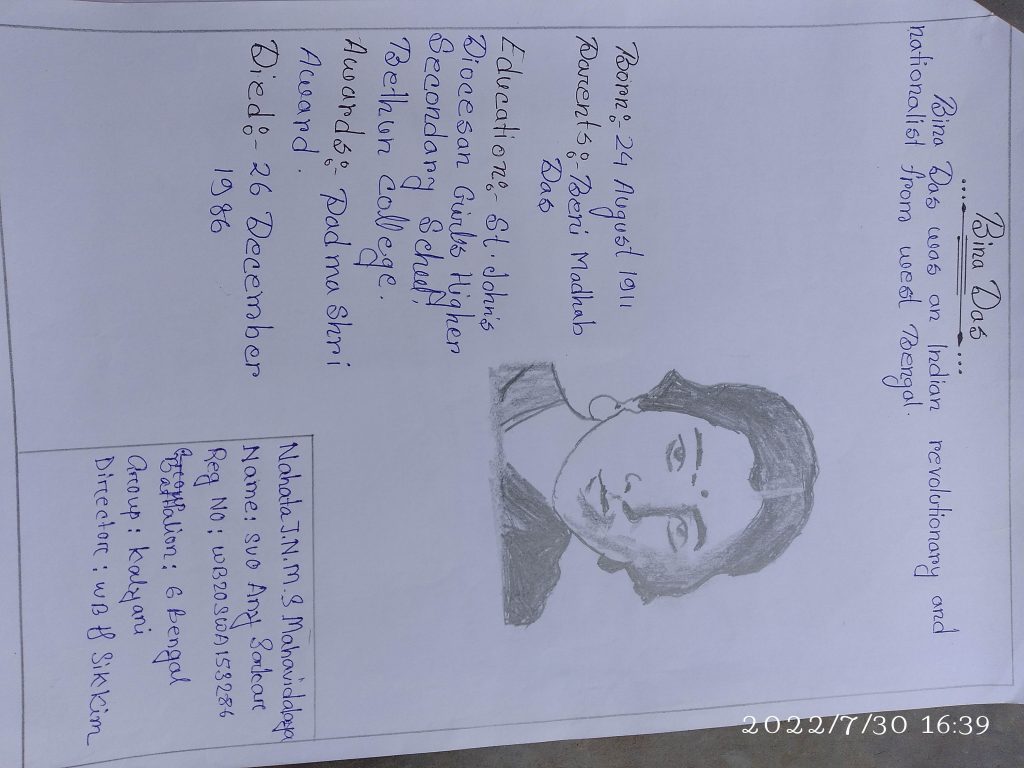 Bina Das
Bina Das was an Indian revolutionary and
nationalist from west Bengal.
Born:- 24 August 1911
Parents:- Beni Madhab
Das
Education:- St. John's
Diocesan Girls Higher
Secondary School,
Bethun college.
Awards:- Padma Shri
Award.
Died:- 26 December
1986
Nahata J.N.M.S Mahavidyalaya
Name: SUO
Reg No: WB20SWA153286
Battalion: 6 Bengal
Group: Kalyani
Director: WB & Sikkim
2022/7/30 16:39